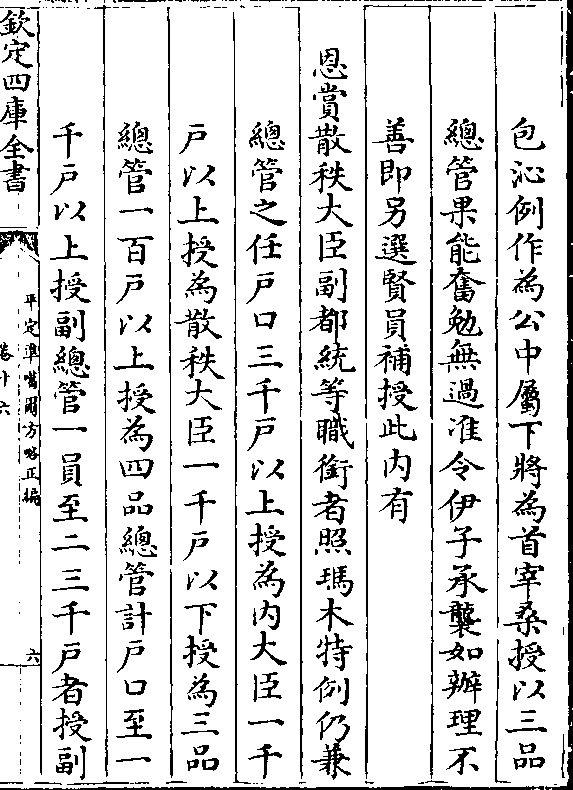 包沁例作為公中屬下將為首宰桑授以三品
總管果能奮勉無過准令伊子承襲如辦理不
善即另選賢員補授此内有
恩賞散秩大臣副都統等職銜者照瑪木特例仍兼
總管之任戶口三千戶以上授為内大臣一千
戶以上授為散秩大臣一千戶以下授為三品
總管一百戶以上授為四品總管計戶口至一
千戶以上授副總管一員至二三千戶者授副
欽定四庫全書
平定準噶爾方略正編
卷十六
六